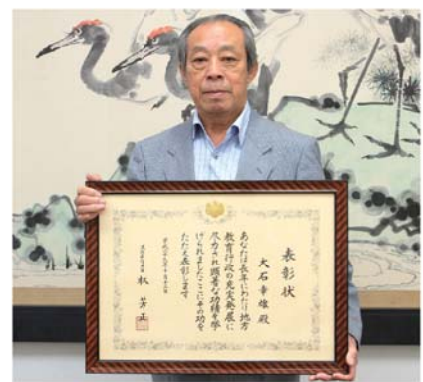 表彰状
大石幸雄 殿
あなたは長年にわたり地方
教育行政の充実発展に
尽力され顕著な功績を挙
げられましたここにその功を
たたえ表彰します